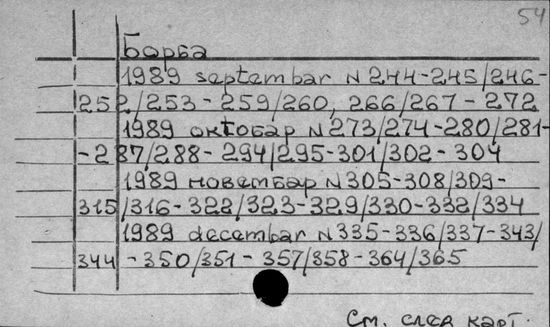 54
Борба
1989 septembar N 244-245/246-
252/253 - 259/260, 266/267 - 272
1989 октобар N 273/274-280/281-
-287/288- 294/295-301/302- 304
1989 новембар N 305-308/309-
315/316-322/323-329/330-332/334
1989 decembar N 335-336/337-343/
344 - 350/351- 357/358-364/365
См. след карт.